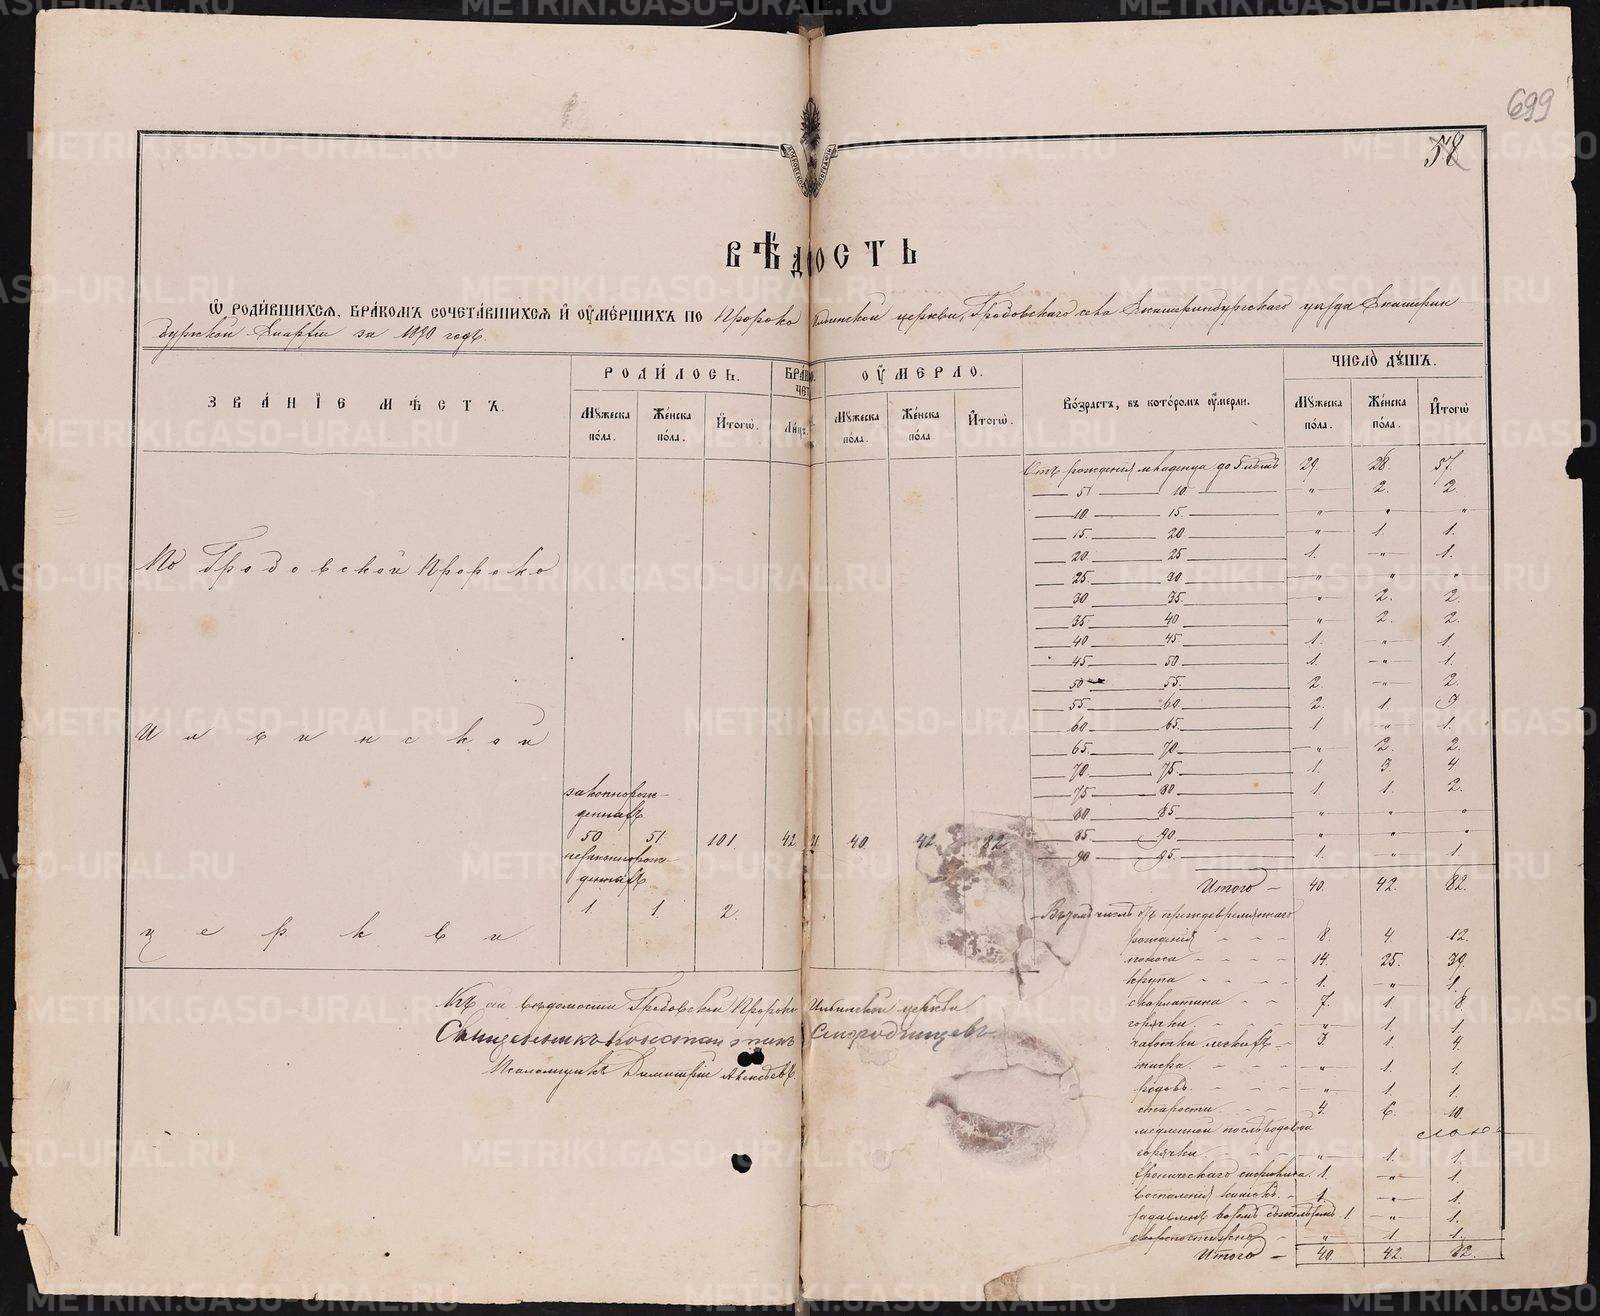 699
58
ВѢДОСТЬ
Ѽ РОДИ́ВШИХСЯ, БРА́КОМЪ СОЧЕТА́ВШИХСЯ И҆ ОУ҆МЕ́РШИХЪ ПО Пророко Ильинской церкви, Бродовскаго села Екатеринбургскаго уѣзда Екатерин
бургской Епархіи за 1890 годъ.
ЗВА́НІЕ МѢ́СТЪ.
РОДИ́ЛОСЬ.
Мꙋ́жеска по́ла.
Же́нска по́ла.
И҆тогѡ̀.
БРА́КО
ЧЕТ
Ли́цъ.
ОУ҆́МЕРЛО.
Мꙋ́жеска по́ла.
Же́нска по́ла.
И҆тогѡ̀.
Во́зрастъ, въ кото́ромъ оу҆́мерли.
ЧИСЛО̀ ДꙊ́ШЪ.
Мꙋ́жеска по́ла.
Же́нска по́ла.
И҆тогѡ̀
По Бродовской Пророко
Ильинской
церкви
законнорож-
денныхъ
50 51. 101. 42 21 40. 42. 82.
незаконнорож-
денныхъ
1. 1. 2.
Отъ рожденія младенца до 5 лѣтъ 29. 28. 57.
5 10. " 2. 2.
10. 15. " " "
15. 20 " 1. 1.
20. 25 1. " 1.
25. 30. " " "
30 35. " 2. 2.
35. 40 " 2. 2.
40 45. 1. " 1.
45. 50 1. " 1.
50 55. 2. " 2.
55. 60. 2. 1. 3
60 65. 1 " 1.
65. 70. " 2. 2.
70. 75. 1. 3. 4
75 80 1. 1. 2.
80 85. " " "
85. 90. " " "
90 95. 1. " 1.
Итого 40. 42. 82.
Въ томъ числѣ отъ преждевременнаго
рожденія 8. 4. 12.
поноса 14. 25. 39.
крупа 1. " 1.
скарлатина 7. 1 8.
горячки " 1. 1.
чахотки легкихъ 3. 1. 4.
тифа " 1. 1.
родовъ " 1. 1.
старости 4. 6. 10.
медленной послѣродовой
горячки " 1. 1.
1. " 1.
воспаленія 1. " 1.
1 " 1.
скоропостижно " 1. 1.
Итого 40 42. 82.
Къ сей вѣдомости Бродовской Пророко Ильинской церкви
Священникъ Константинъ Смородинцевъ.
Псаломщикъ Димитрій
METRIKI.GASO-URAL.RU